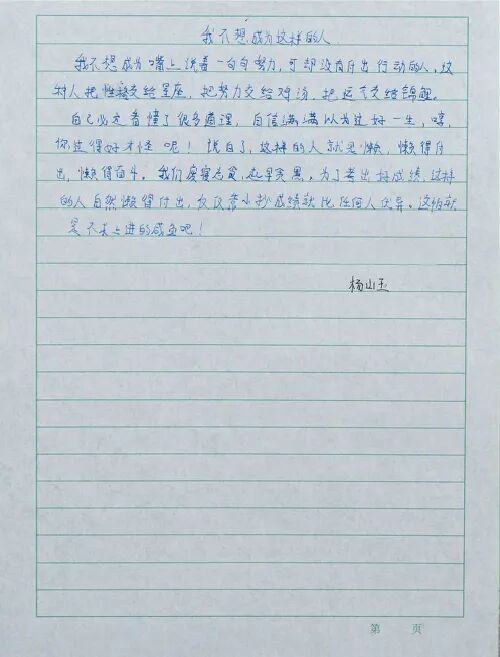 我不想成为这样的人
我不想成为嘴上说着一句句努力,可却没有付出行动的人,这
种人把性格交给星座,把努力交给鸡汤,把运气交给锦鲤。
自己必定看懂了很多道理,自信满满以为过好一生,哼,
你过得好才怪呢!说白了,这样的人就是懒,懒得付
出,懒得奋斗。我们废寝忘食,起早贪黑,为了考出好成绩,这样
的人自然懒得付出,仅仅靠小抄成绩就比任何人优异。这怕就
是不求上进的咸鱼吧!
杨山玉
第 页